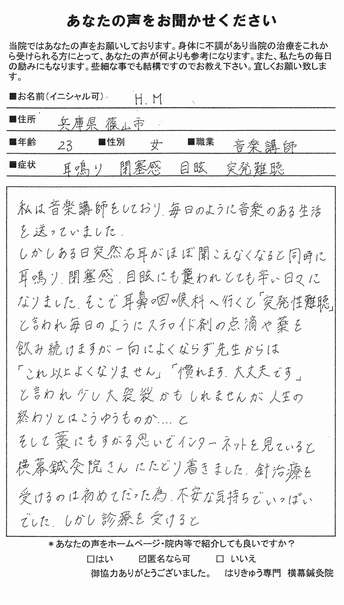 あなたの声をお聞かせください
当院ではあなたの声をお願いしております。身体に不調があり当院の治療をこれか
ら受けられる方にとって、あなたの声が何よりも参考になります。また、私たちの毎日
の励みにもなります。些細な事でも結構ですのでお教え下さい。宜しくお願い致しま
す。
■お名前(イニシャル可) H.M
■住所 兵庫県篠山市
■年齢 23 ■性別 女 ■職業 音楽講師
■症状 耳鳴り 閉塞感 目眩 突発難聴
私は音楽講師をしており、毎日のように音楽のある生活
を送っていました。
しかしある日突然右耳がほぼ聞こえなくなると同時に
耳鳴り、閉塞感、目眩にも襲われとても辛い日々に
なりました。そこで耳鼻咽喉科へ行くと「突発性難聴」
と言われ毎日のようにステロイド剤の点滴や薬を
飲み続けますが一向によくならず先生からは
「これ以上よくなりません」「慣れます、大丈夫です」
と言われ少し大袈裟かもしれませんが人生の
終わりとはこうゆうものか....と
そして藁にもすがる思いでインターネットを見ていると
横幕鍼灸院さんにたどり着きました。針治療を
受けるのは初めてだった為、不安な気持ちでいっぱい
でした。しかし診療を受けると
*あなたの声をホームページ・院内等で紹介しても良いですか?
□はい ☑匿名なら可 □ いいえ
御協力ありがとうございました。 はりきゅう専門 横幕鍼灸院